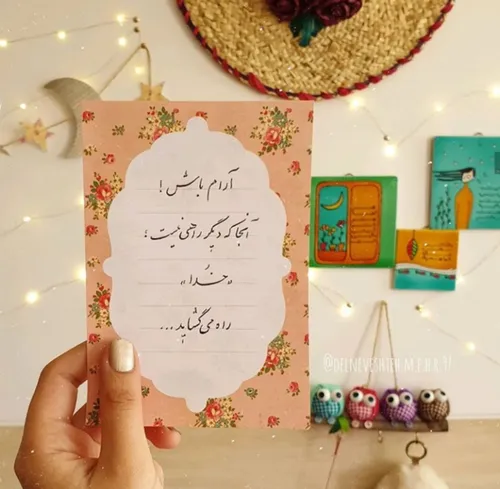 آرام باش !
آنجا که دیگر راهی نیست ؛
"خُدا"
راه می گشاید ...